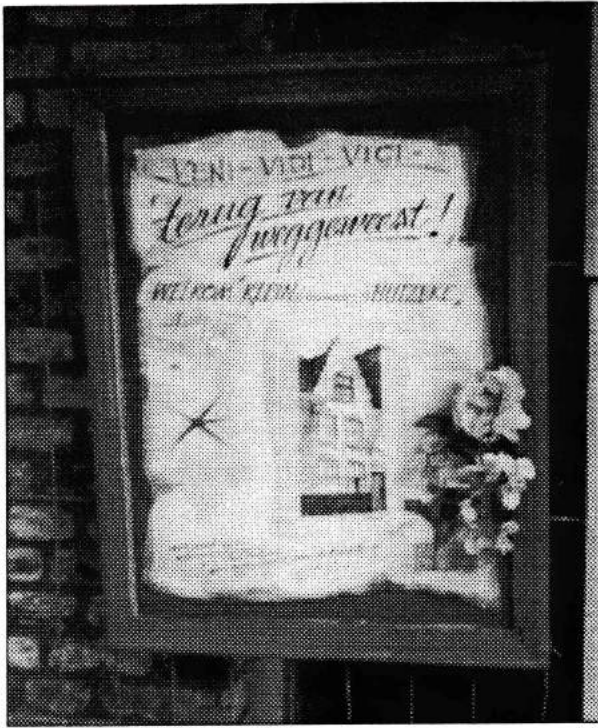 VENI - VIDI - VICI -
terug van
weggeweest!
WELKOM KLEIN HUIZEKE